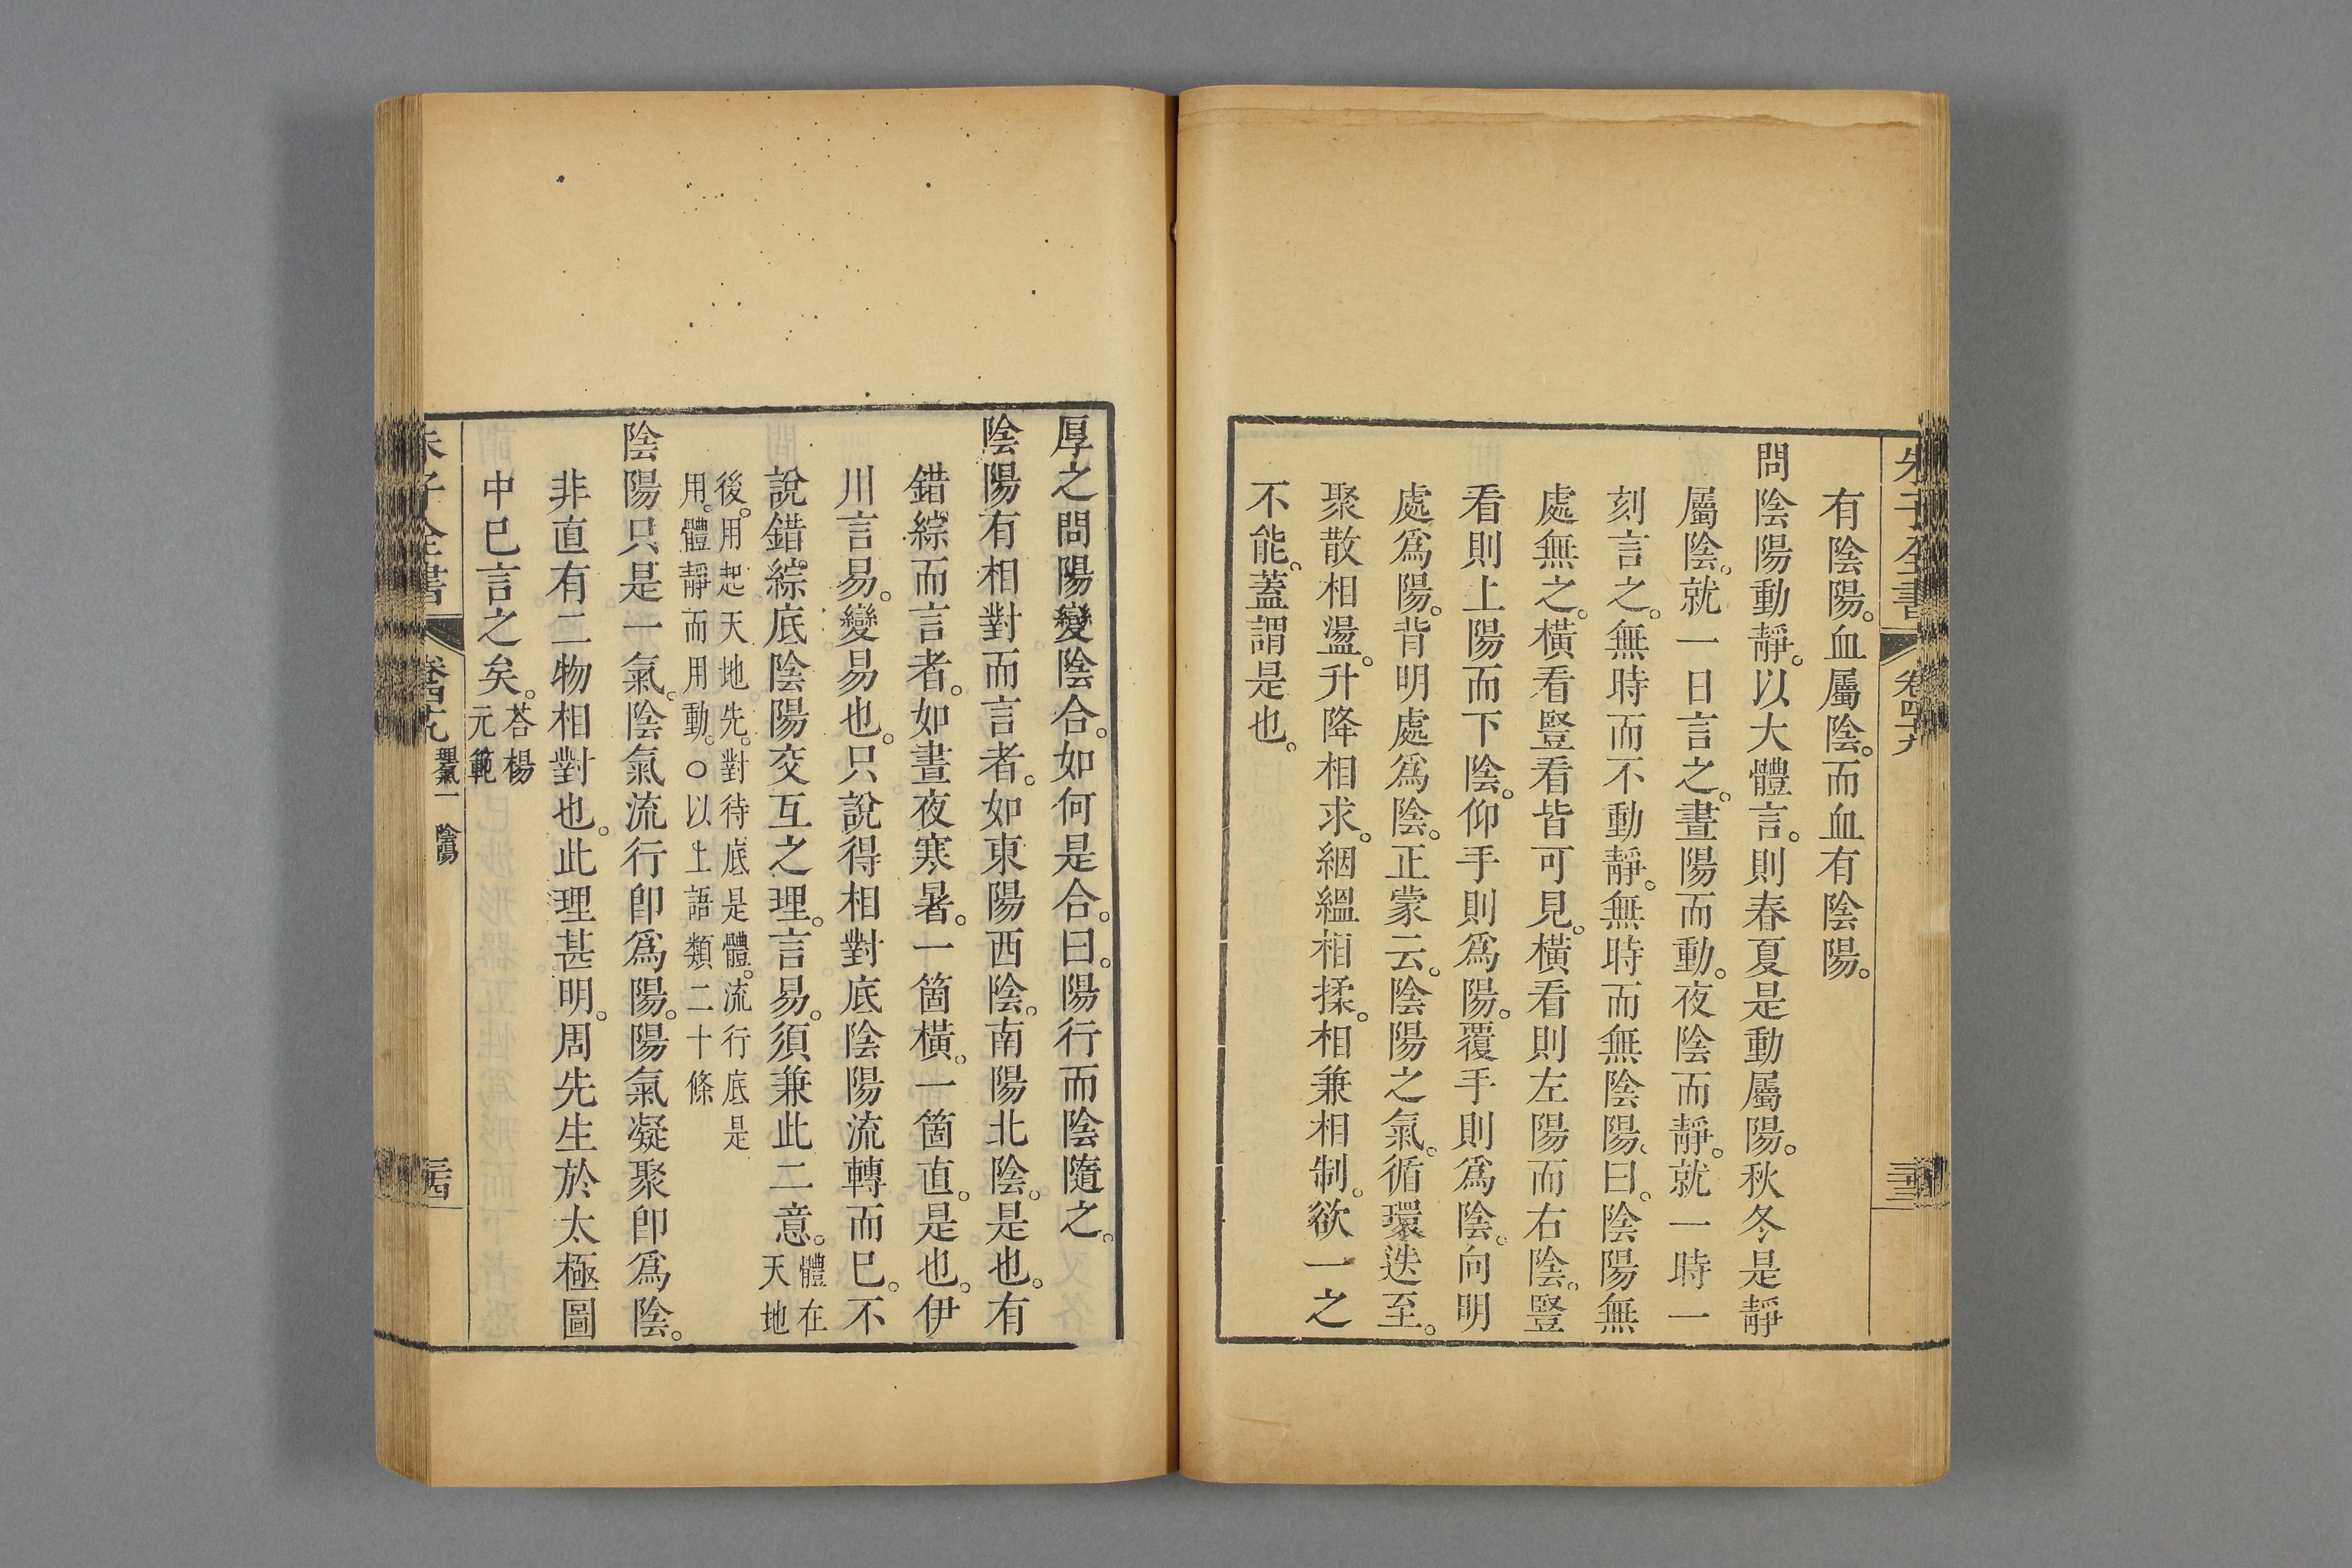 朱子全書 卷四十九
有陰陽。血屬陰。而血有陰陽。
問陰陽動靜。以大體言。則春夏是動屬陽。秋冬是靜
屬陰。就一日言之。晝陽而動。夜陰而靜。就一時一
刻言之。無時而不動靜。無時而無陰陽。曰。陰陽無
處無之。橫看豎看皆可見。橫看則左陽而右陰。豎
看則上陽而下陰。仰手則爲陽。覆手則爲陰。向明
處爲陽。背明處爲陰。正蒙云。陰陽之氣。循環迭至。
聚散相盪。升降相求。絪縕相揉。相兼相制。欲一之
不能。蓋謂是也。
厚之問陽變陰合。如何是合。曰。陽行而陰隨之。
陰陽有相對而言者。如東陽西陰。南陽北陰。是也。有
錯綜而言者。如晝夜寒暑。一箇橫。一箇直。是也。伊
川言易。變易也。只說得相對底陰陽流轉而已。不
說錯綜底陰陽交互之理。言易。須兼此二意。體在
天地
後。用起天地先。對待底是體。流行底是
用。體靜而用動。○以上語類二十條
陰陽只是一氣。陰氣流行卽爲陽。陽氣凝聚卽爲陰。
非直有二物相對也。此理甚明。周先生於太極圖
中已言之矣。荅楊
元範
朱子全書 卷四十九 理氣一 陰陽 三四